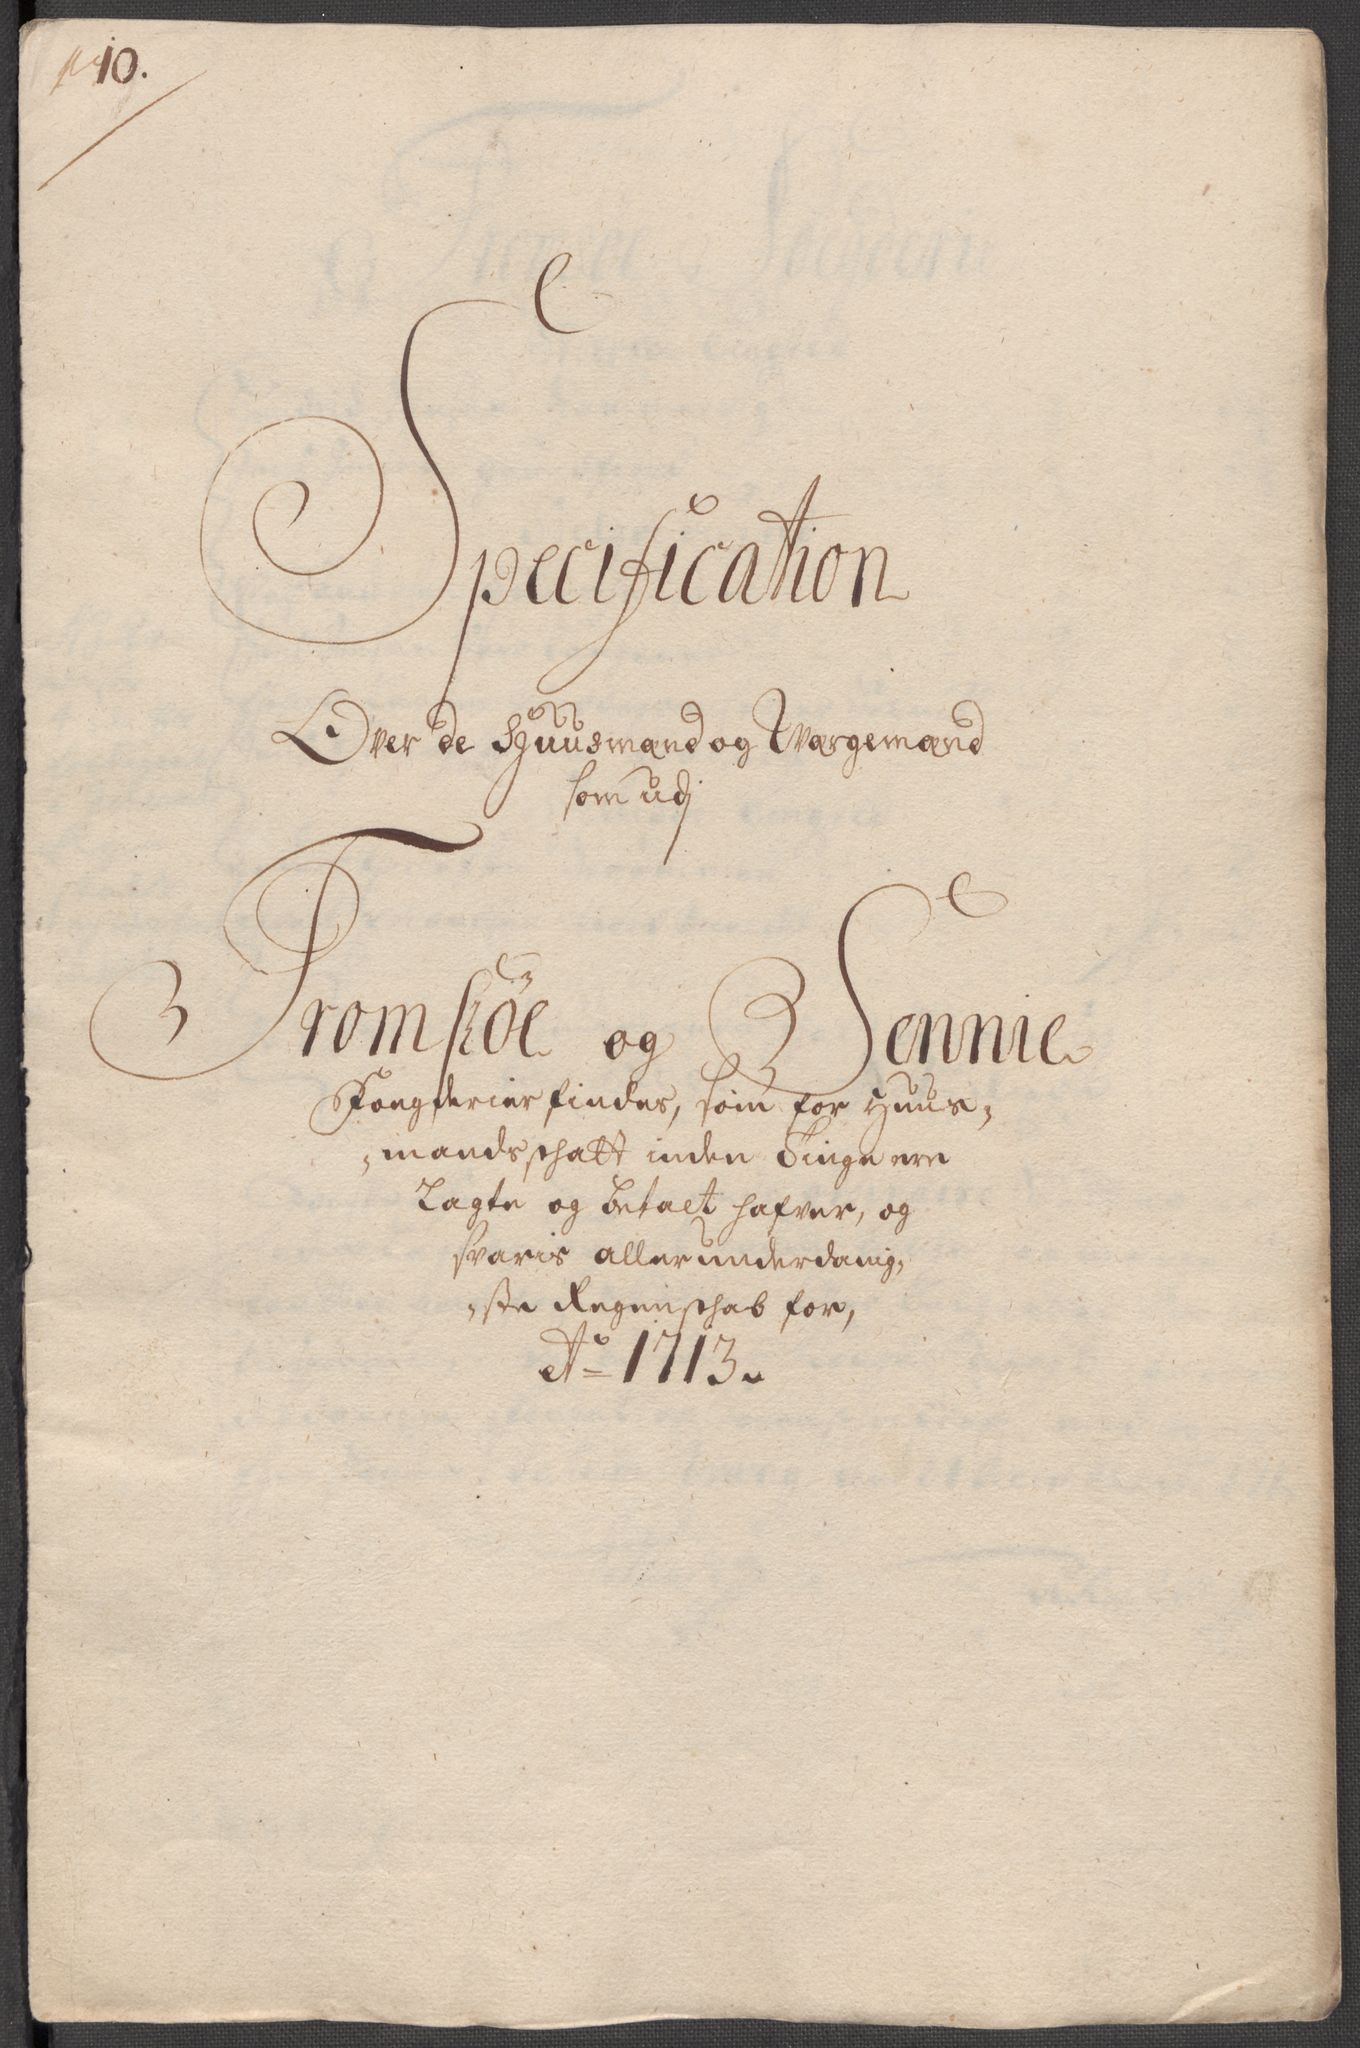 10.
Specification
Over de Huusmænd og Wærgemænd
som udj
Tromsøe og Sennie
Foegderier findes, som for Huus-
mandsschatt inden Tinge ere
Lagte og betalt hafver, og
svaris allerunderdanig-
ste Regenschab for,
Ao 1713.